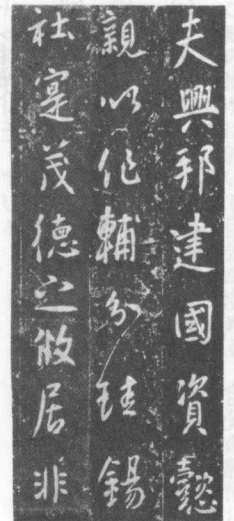 夫興邦建國資懿
親以作輔分珪錫
社寔茂德之攸居非